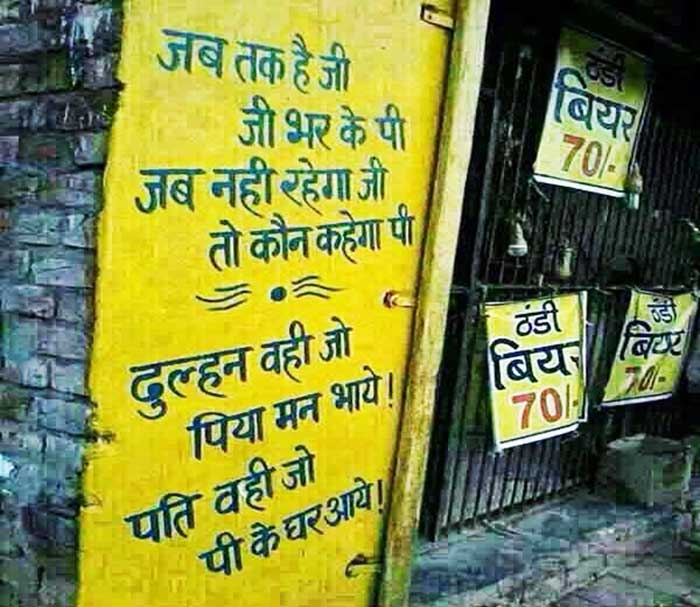 जब तक है जी
जी भर के पी
जब नही रहेगा जी
तो कौन कहेगा पी
दुल्हन वही जो
पिया मन भाये!
पति वही जो
पी के घर आये!
ठंडी
बियर
70/-
ठंडी
बियर
70/-
ठंडी
बियर
70/-